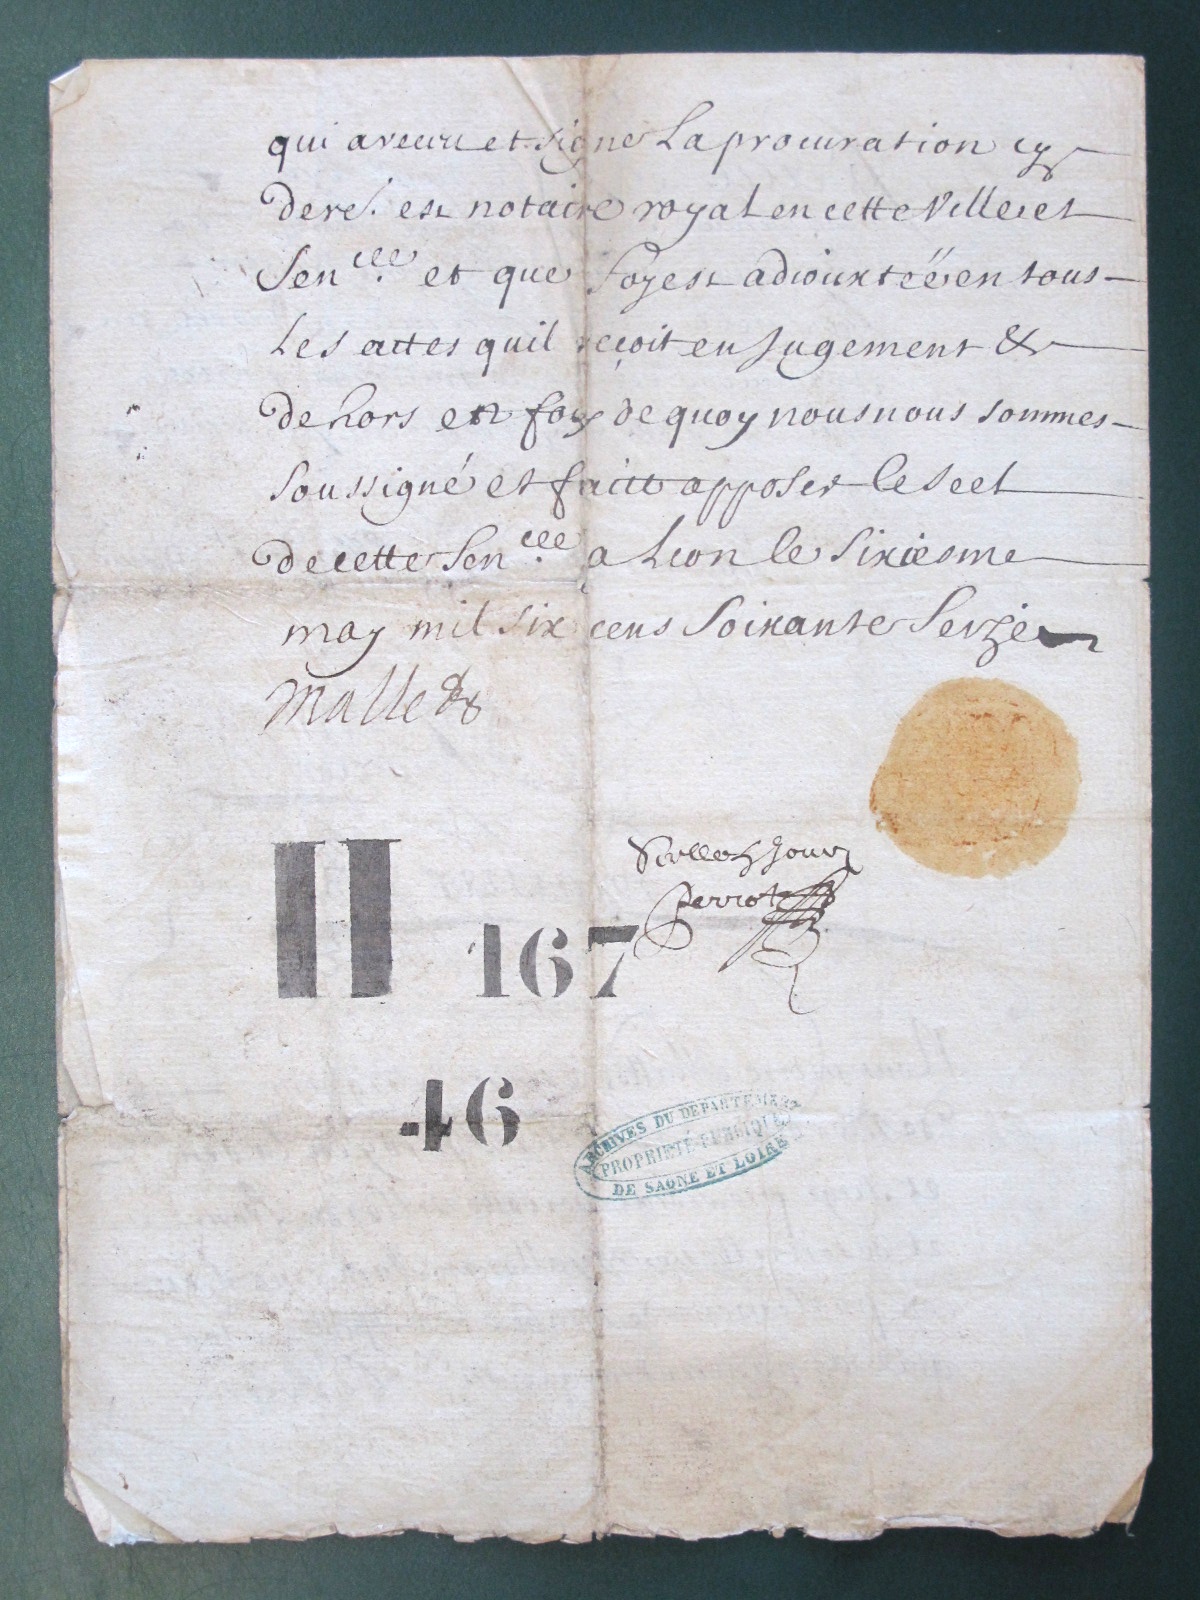 qui a receu et signe La procuration cy
deref. est notaire royal en cette Ville et
Sencee. et que foy est adiouxteë en tous
Les actes quil reçoit en Jugement &
dehors en foy de quoy nous nous sommes
soussigné et faict apposer le seel
de cette Sencee. a Lion le sixiesme
may mil six cens Soixante Seize
Mallet
Scelle h Jour
Perrot
H 167
46
ARCHIVES DU DEPARTEMENT
PROPRIETÉ PUBLIQUE
DE SAONE ET LOIRE